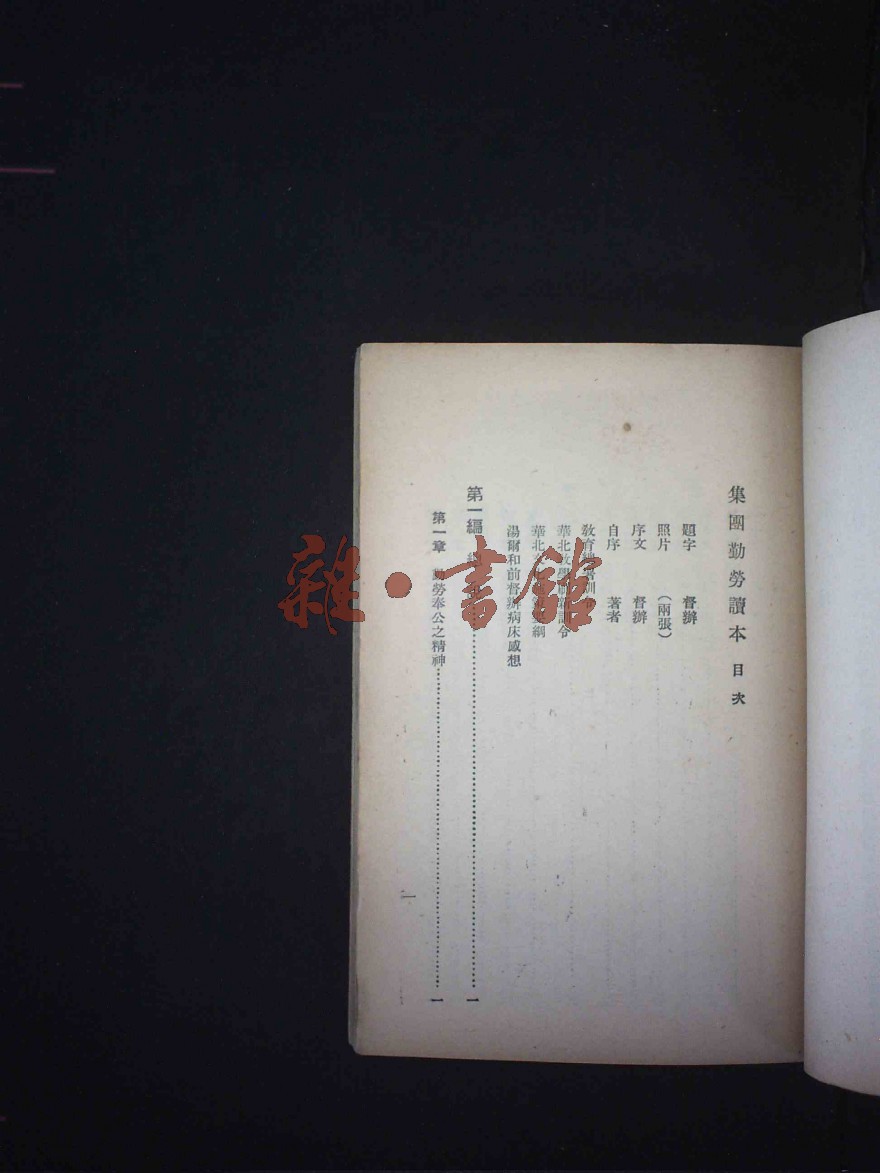 集團勤勞讀本 目次
題字 督辦
照片 (兩張)
序文 督辦
自序 著者
教育總署訓令
華北教學刷新訓令
華北 綱
湯爾和前督辦病床感想
第一編 總 一
第一章 勤勞奉公之精神 一
一
雜·書館